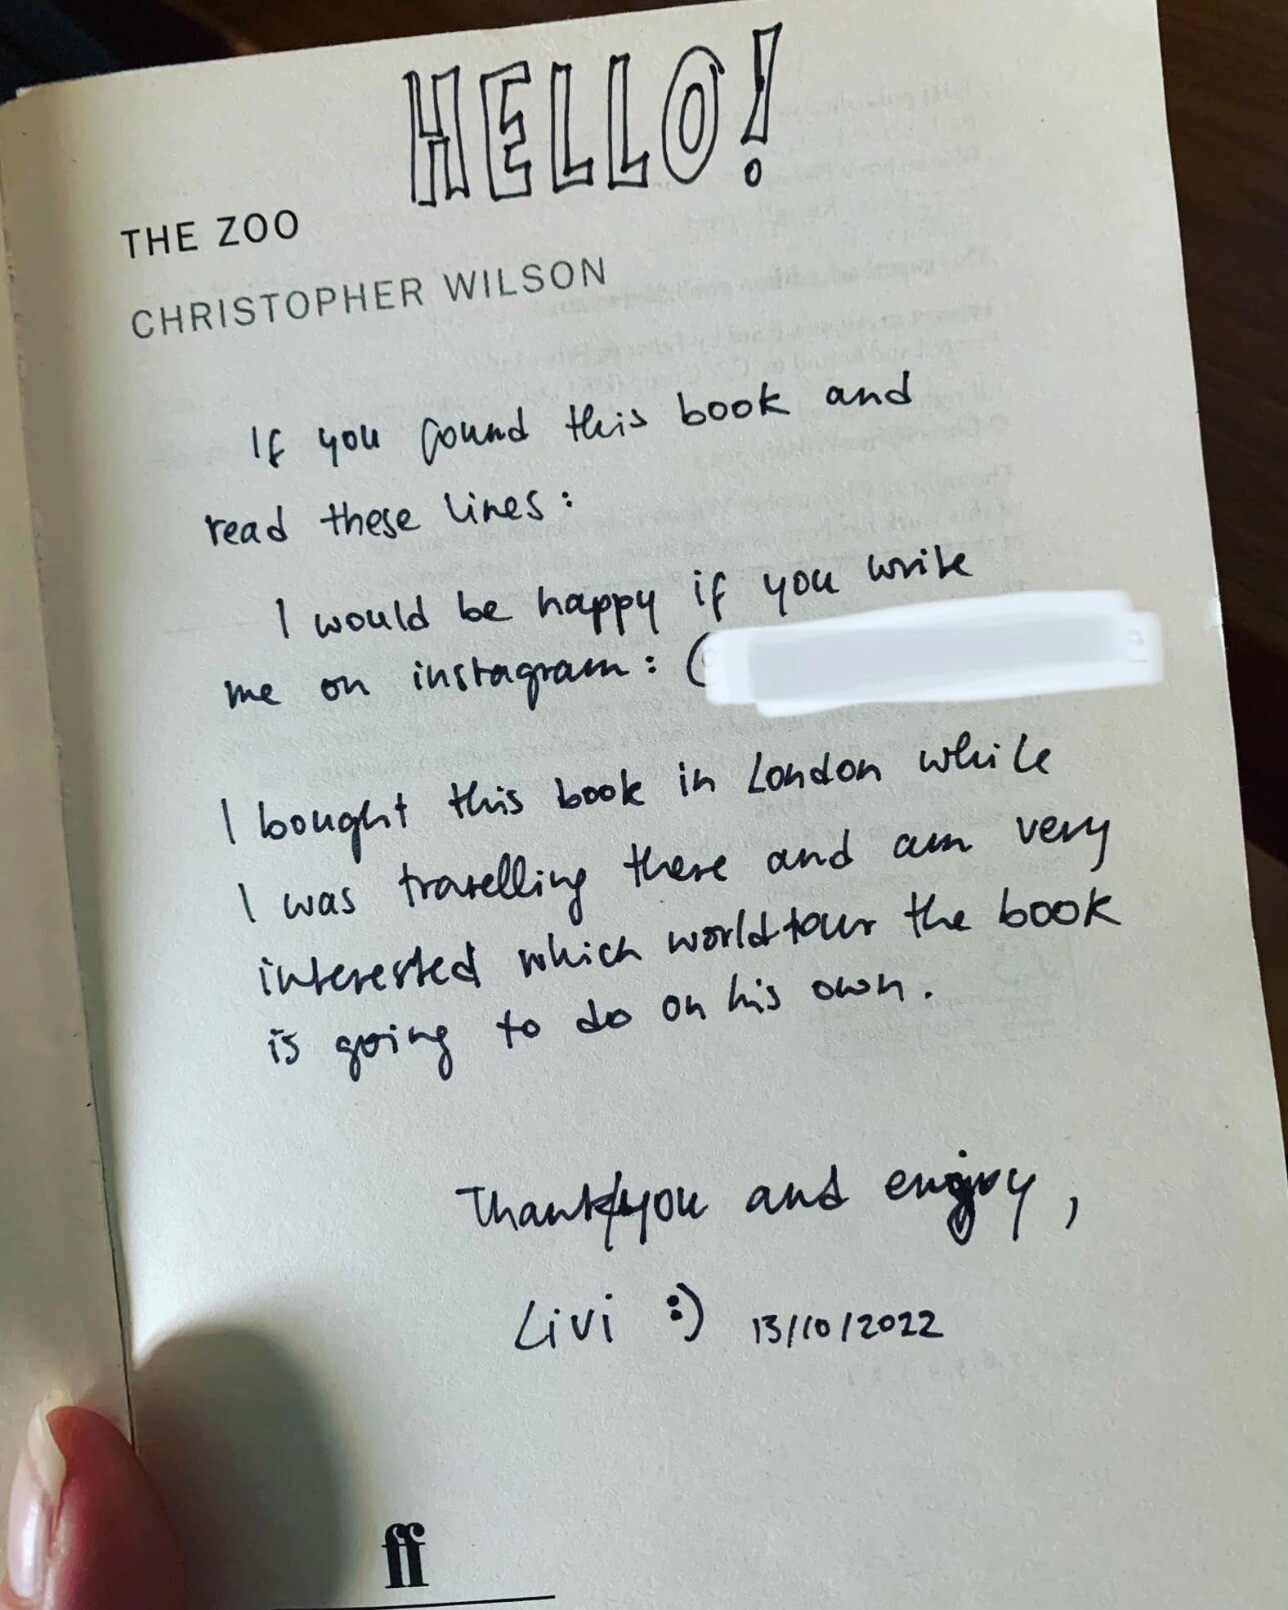 HELLO!
THE ZOO
CHRISTOPHER WILSON
If you found this book and
read these lines:
I would be happy if you write
me on instagram:
I bought this book in London while
I was travelling there and am very
interested which worldtour the book
is going to do on his own.
Thank/you and enjoy,
Livi :) 13/10/2022
ff